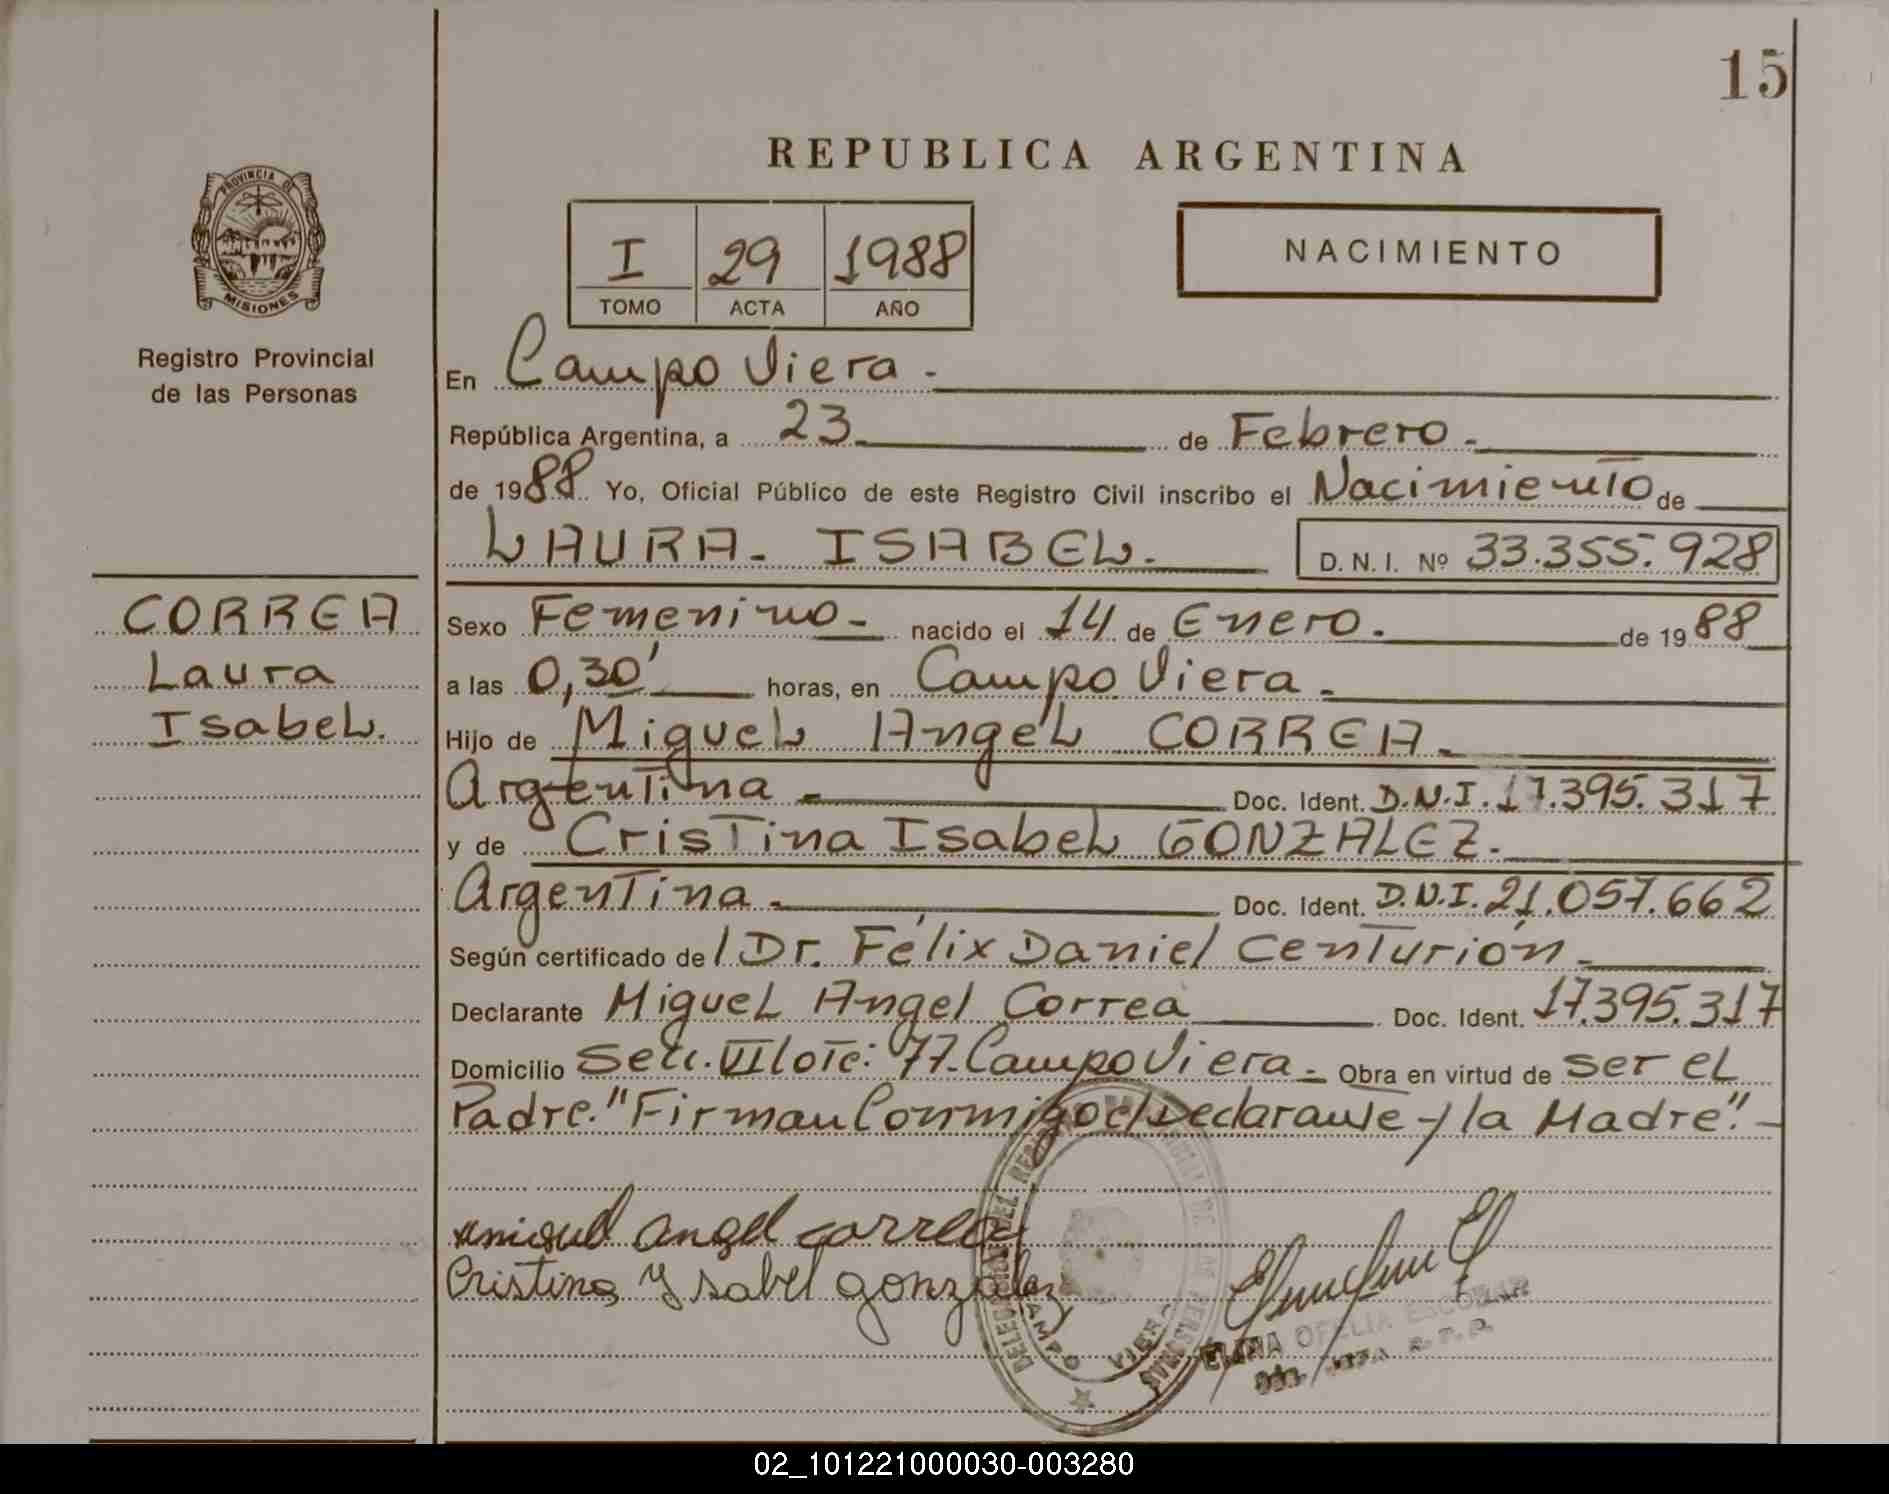 15
REPUBLICA ARGENTINA
PROVINCIA DE
MISIONES
Registro Provincial
de las Personas
I 29 1988
TOMO ACTA AÑO
NACIMIENTO
En Campo Viera.
República Argentina, a 23 de Febrero.
de 1988 Yo, Oficial Público de este Registro Civil inscribo el Nacimiento de
LAURA. ISABEL. D. N. I. Nº 33.355.928
CORREA
Laura
Isabel.
Sexo Femenino. nacido el 14 de Enero. de 19 88
a las 0,30' horas, en Campo Viera.
Hijo de Miguel Angel CORREA.
Argentina Doc. Ident. D.N.I. 17.395.317
y de Cristina Isabel GONZALEZ.
Argentina. Doc. Ident. D.N.I. 21.057.662
Según certificado de l Dr. Félix Daniel Centurión.
Declarante Miguel Angel Correa Doc. Ident. 17.395.317
Domicilio Secc. VII lote: 77. Campo Viera. Obra en virtud de ser el
Padre. "Firman Conmigo el Declarante y la Madre".
miguel angel correa
Cristina Ysabel gonzalez
CAMPO VIERA
OFELIA ESCOBAR
02_101221000030-003280